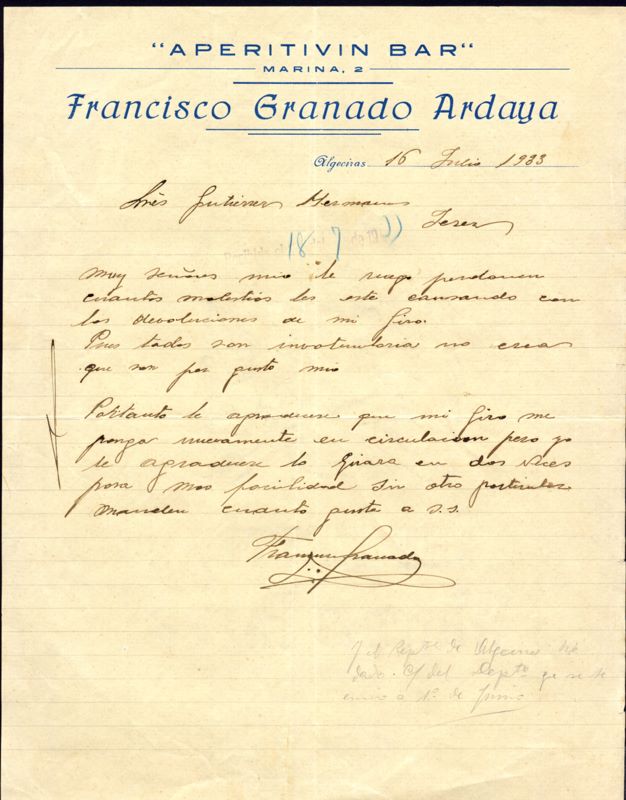 "APERITIVIN BAR"
MARINA, 2
Francisco Granado Ardaya
Algeciras 16 Julio 1933
Sres Gutierrez Hermanos
Jerez
18 7
Muy señores mio le ruego perdonen
cuantas molestios les este causando con
las devoluciones de mi Giro.
Pues todas son involuntaria no crea
que son por gusto mio
Portanto le agradecese que mi Giro me
ponga nuevamente en circulacion pero yo
le agradecese lo Girara en dos veces
para mas facilidad sin otro particular
manden cuanto guste a s.s.
Francisco Granado
de Algeciras
dado. C/ del Depto que se le
envio a 1º de Junio